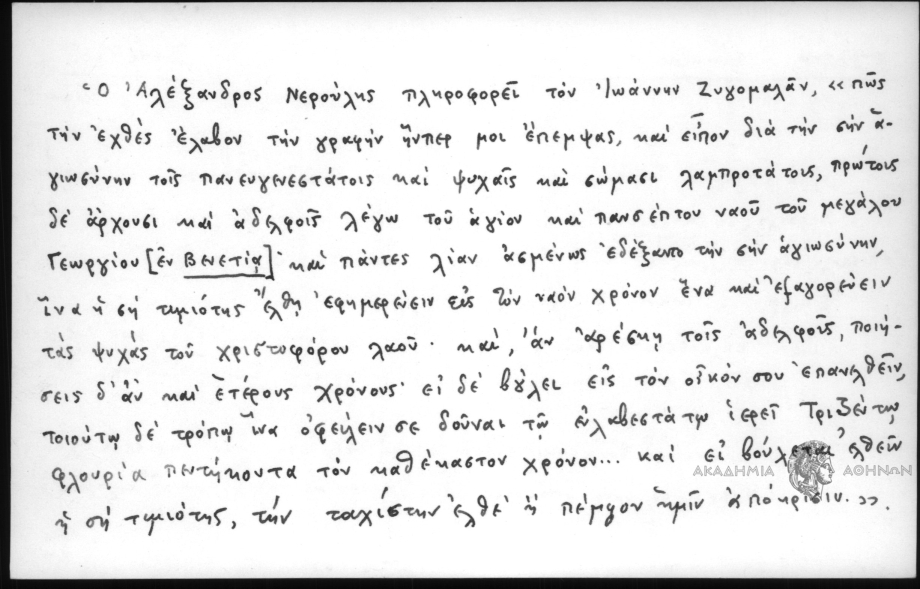 Ὁ Ἀλέξανδρος Νερούλης πληροφορεῖ τὸν Ἰωάννην Ζυγομαλᾶν, «πῶς
τὴν ἐχθὲς ἔλαβον τὴν γραφὴν ἥνπερ μοι ἔπεμψας, καὶ εἶπον διὰ τὴν σὴν ἁ-
γιωσύνην τοῖς πανευγενεστάτοις καὶ ψυχαῖς καὶ σώμασι λαμπροτάτοις, πρώτοις
δὲ ἄρχουσι καὶ ἀδελφοῖς λέγω τοῦ ἁγίου καὶ πανσέπτου ναοῦ τοῦ μεγάλου
Γεωργίου [ἐν Βενετίᾳ] καὶ πάντες λίαν ἀσμένως ἐδέξαντο τὴν σὴν ἁγιωσύνην,
ἵνα ἡ σὴ τιμιότης ἔλθῃ ἐφημερεύειν εἰς τὸν ναὸν χρόνον ἕνα καὶ ἐξαγορεύειν
τὰς ψυχὰς τοῦ χριστοφόρου λαοῦ· καὶ, ἂν ἀρέσκῃ τοῖς ἀδελφοῖς, ποιή-
σεις δ' ἂν καὶ ἑτέρους χρόνους· εἰ δὲ βούλει εἰς τὸν οἶκόν σου ἐπανελθεῖν,
τοιούτῳ δὲ τρόπῳ ἵνα ὀφείλειν σε δοῦναι τῷ εὐλαβεστάτῳ ἱερεῖ Τριζέντῳ
φλουρία πεντήκοντα τὸν καθέκαστον χρόνον... καὶ εἰ βούλεται ἐλθεῖν
ἡ σὴ τιμιότης, τὴν ταχίστην ἐλθὲ ἢ πέμψον ἡμῖν ἀπόκρισιν.».
ΑΚΑΔΗΜΙΑ ΑΘΗΝΩΝ